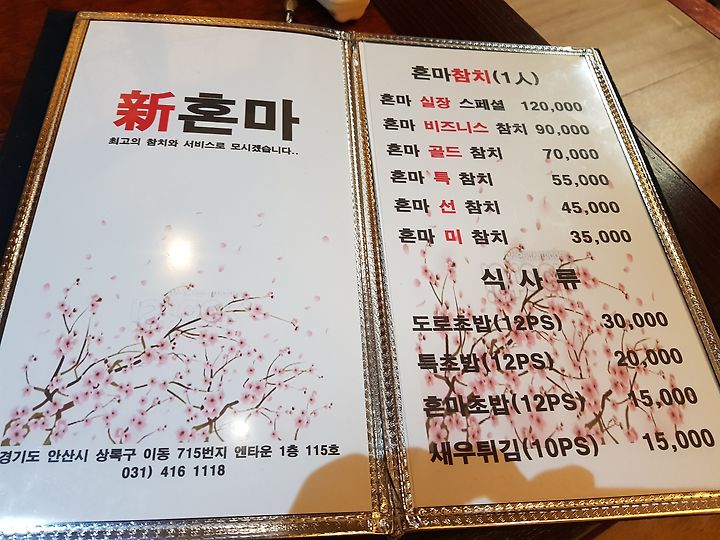 新혼마
최고의 참치와 서비스로 모시겠습니다..
경기도 안산시 상록구 이동 715번지 엔타운 1층 115호
031) 416 1118
혼마참치(1人)
혼마 실장 스페셜 120,000
혼마 비즈니스 참치 90,000
혼마 골드 참치 70,000
혼마 특 참치 55,000
혼마 선 참치 45,000
혼마 미 참치 35,000
식 사 류
도로초밥(12PS) 30,000
특초밥(12PS) 20,000
혼마초밥(12PS) 15,000
새우튀김(10PS) 15,000